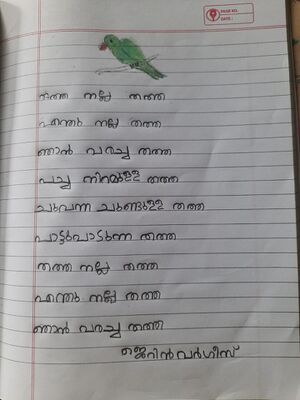 PAGE NO.
DATE :
തത്ത നല്ല തത്ത
എന്തു നല്ല തത്ത
ഞാൻ വരച്ച തത്ത
പച്ച നിറമുള്ള തത്ത
ചുവന്ന ചുണ്ടുള്ള തത്ത
പാട്ടുപാടുന്ന തത്ത
തത്ത നല്ല തത്ത
എന്തു നല്ല തത്ത
ഞാൻ വരച്ച തത്ത
ജെറിൻ വർഗീസ്